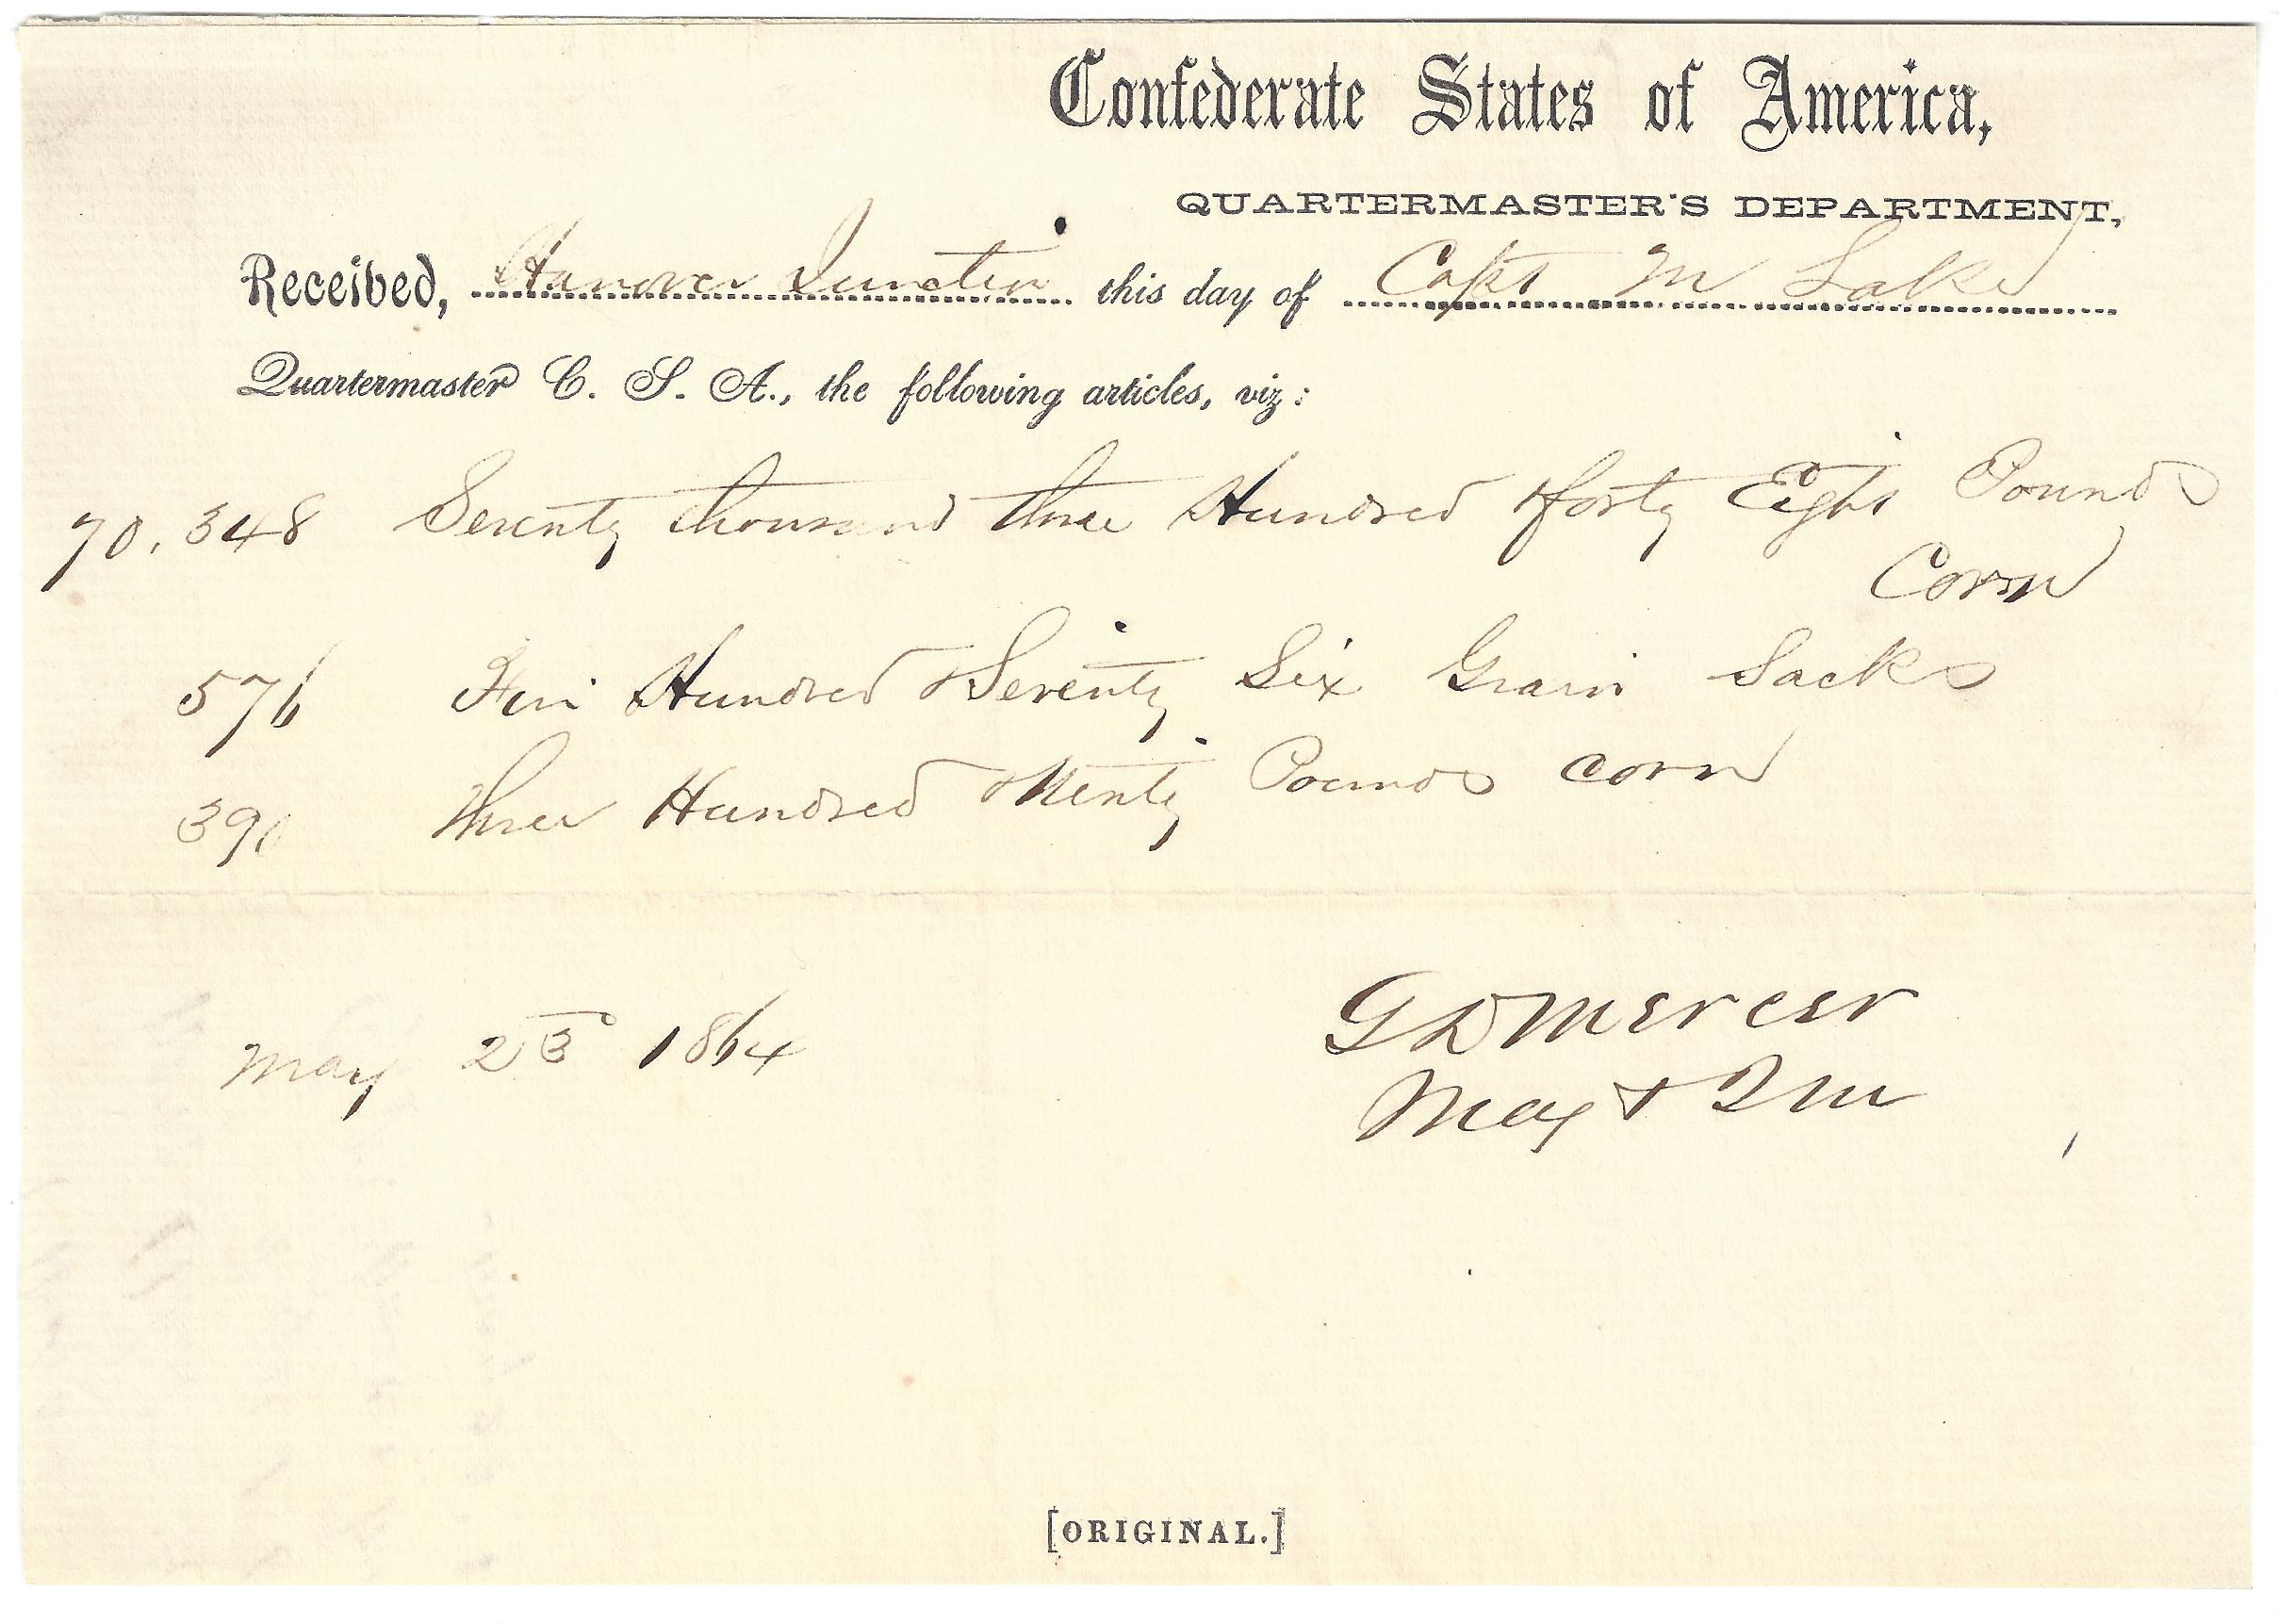 Confederate States of America,
QUARTERMASTER'S DEPARTMENT,
Received, Hanover Junction this day of Capt M Lake
Quartermaster C. S. A., the following articles, viz:
70,348 Seventy thousand three Hundred forty Eight Pounds
Corn
576 Five Hundred Seventy Six Grain Sacks
390 Three Hundred Ninty Pounds corn
May 23 1864 G D Mercer
Maj & Qm
[ORIGINAL.]